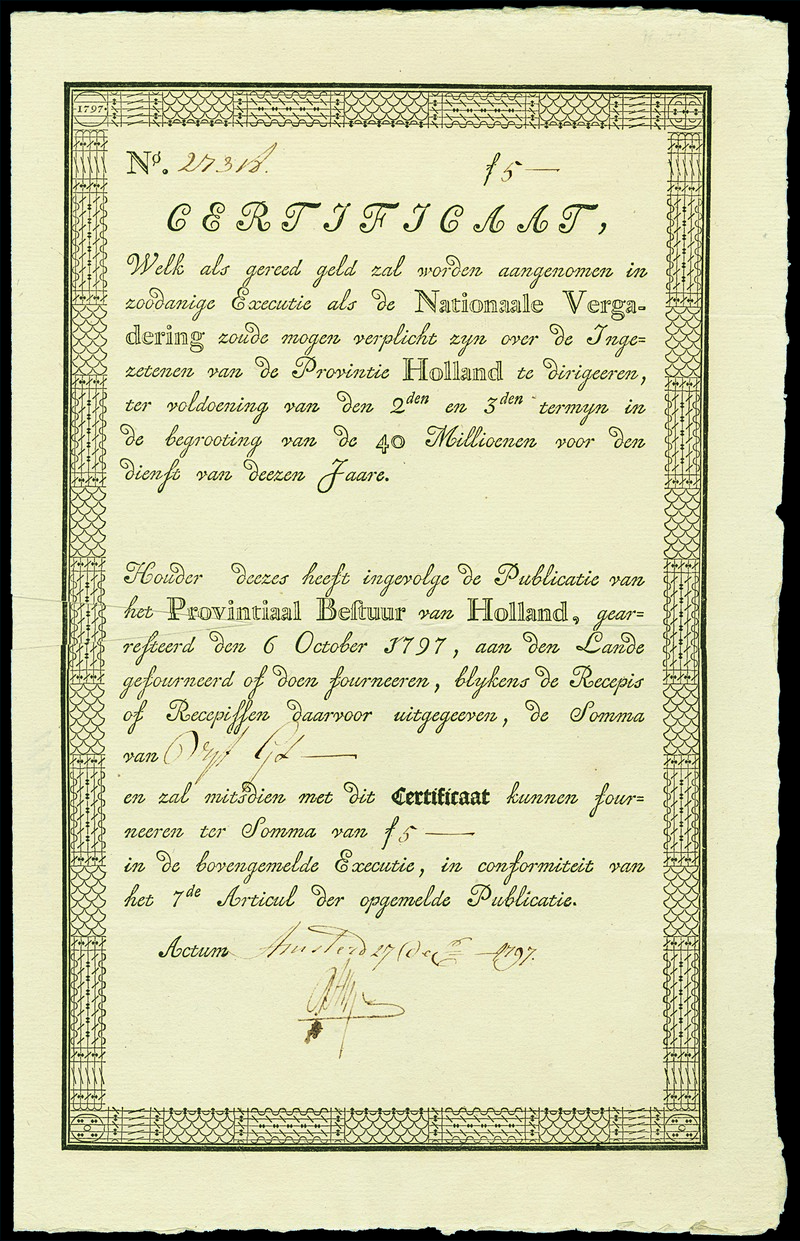 1797.
Nº. 27318. ƒ 5 —
CERTIFICAAT,
Welk als gereed geld zal worden aangenomen in
zoodanige Executie als de Nationaale Verga-
dering zoude mogen verplicht zyn over de Inge=
zetenen van de Provintie Holland te dirigeeren,
ter voldoening van den 2den en 3den termyn in
de begrooting van de 40 Millioenen voor den
dienſt van deezen Jaare.
Houder deezes heeft ingevolge de Publicatie van
het Provintiaal Beſtuur van Holland, gear=
reſteerd den 6 October 1797, aan den Lande
gefourneerd of doen fourneeren, blykens de Recepis
of Recepiſſen daarvoor uitgegeeven, de Somma
van Vyf Gl —
en zal mitsdien met dit Certificaat kunnen four=
neeren ter Somma van ƒ 5 —
in de bovengemelde Executie, in conformiteit van
het 7de Articul der opgemelde Publicatie.
Actum Amsterd 27 Dec 1797.